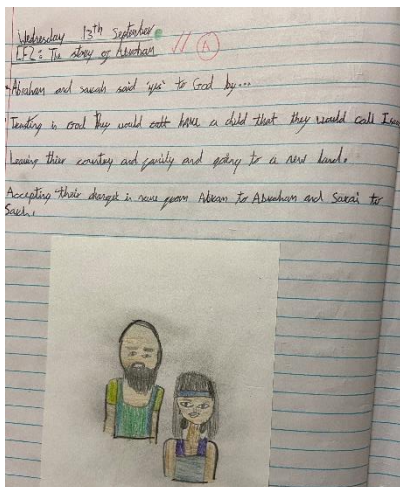 Wednesday 13th September
LF2: The story of Abraham
Abraham and sarah said "yes" to God by...
Trusting in God they would have a child that they would call
Leaving thier country and family and going to a new land.
Accepting their changes in name from Abram to Abraham and Sarai to
Sarah.